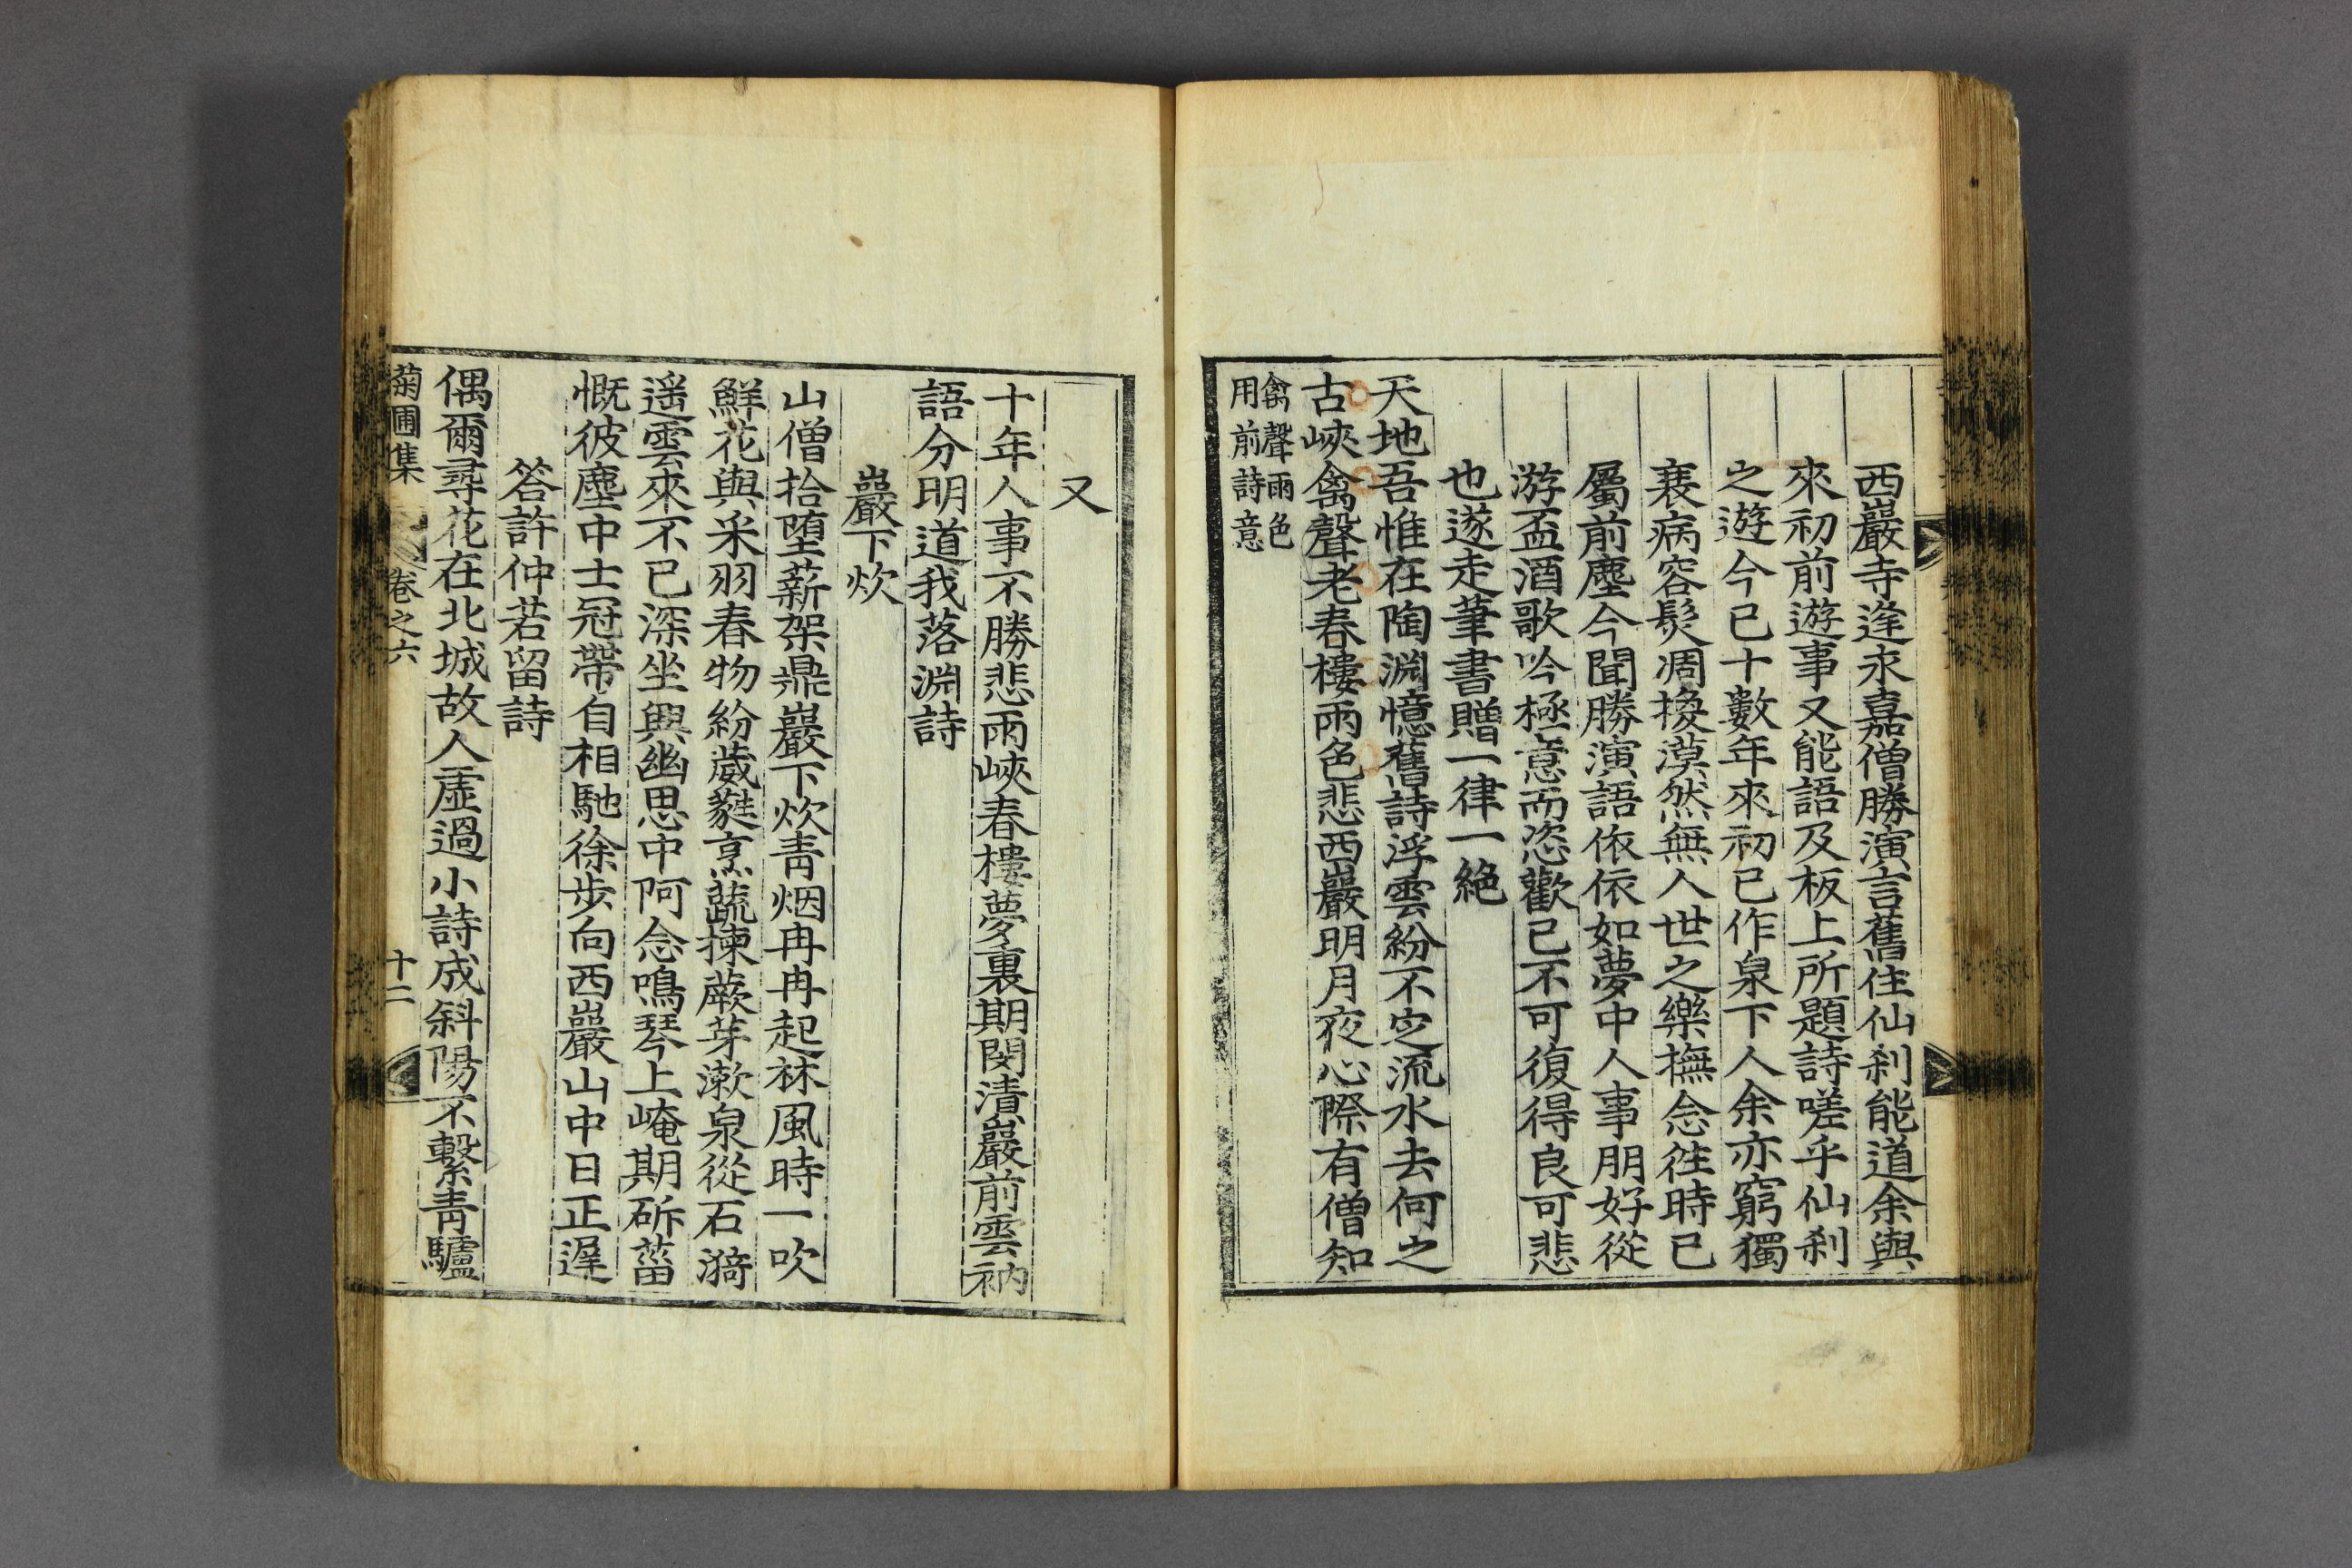 西巖寺逢永嘉僧勝演言舊住仙刹能道余與
來初前遊事又能語及板上所題詩嗟乎仙刹
之遊今已十數年來初已作泉下人余亦窮獨
衰病容髮凋換漠然無人世之樂撫念徃時已
屬前塵今聞勝演語依依如夢中人事朋好從
游盃酒歌吟極意而恣歡已不可復得良可悲
也遂走筆書贈一律一絶
天地吾惟在陶淵憶舊詩浮雲紛不定流水去何之
古峽禽聲老春樓雨色悲西巖明月夜心際有僧知
禽聲雨色
用前詩意
又
十年人事不勝悲雨峽春樓夢裏期閔漬巖前雲衲
語分明道我落淵詩
巖下炊
山僧拾堕薪架鼎巖下炊靑烟冉冉起林風時一吹
鮮花與采羽春物紛葳蕤烹蔬揀蕨芽漱泉從石漪
遥雲來不已深坐興幽思中阿念鳴琴上崦期斫菑
慨彼塵中士冠帶自相馳徐步向西巖山中日正遲
答許仲若留詩
偶爾尋花在北城故人虛過小詩成斜陽不繫靑驢
菊圃集 卷之六 十二